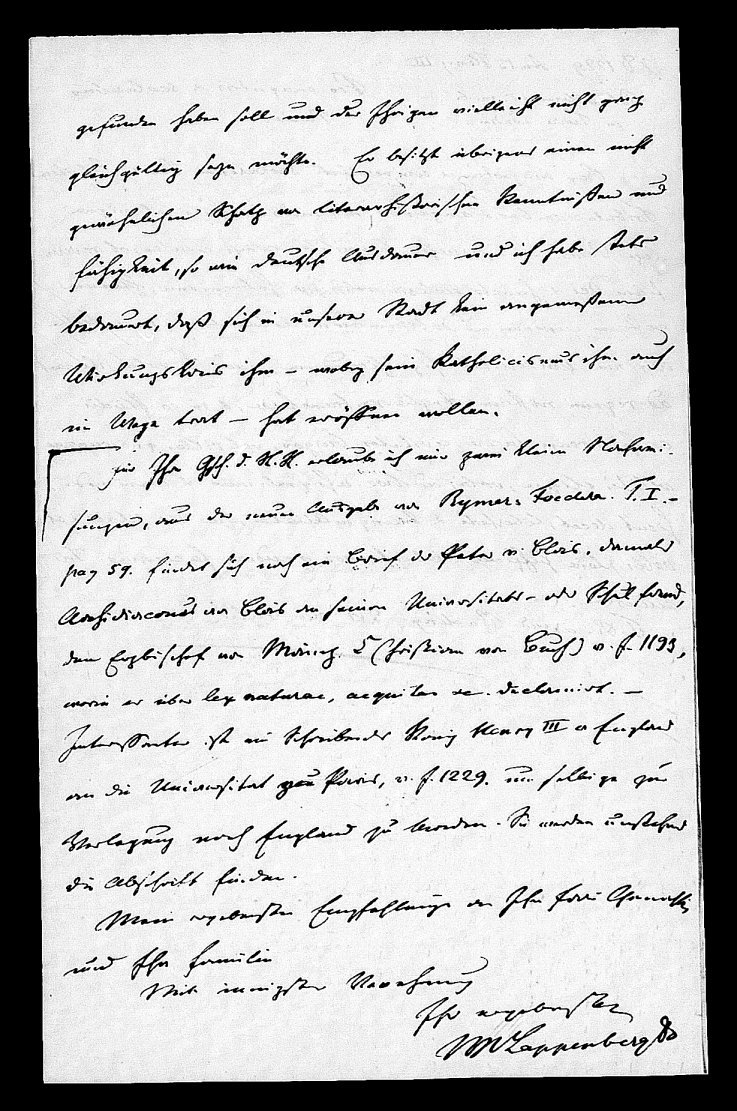 gefunden haben soll und der Ihrigen vielleicht nicht ganz
gleichgültig seyn möchte. Er besitzt übrigens einen nicht
gewöhnlichen Schatz von literarhistorischen Kenntnißen und
Fähigkeit, so wie deutsche Ausdauer und ich habe stets
bedauert, daß sich in unserer Stadt kein angemeßener
Wirkungskreis ihm – wobey sein Katholicismus ihm auch
im Wege trat – hat eröffnen wollen.
Für Ihre Gsch. d. R. R. erlaube ich mir zwei kleine Nachwei-
sungen, aus der neuen Ausgabe von Rymer: Foedera. T. I. –
pag 59. findet sich noch ein Brief des Peter v. Blois, damals
Archidiaconus von Blois an seinen Universitäts- oder Schulfreund,
den Erzbischof von Mainz (Christian von Buch) v. J. 1193,
worin er über lex naturae, aequitas etc. declamirt. –
Interessanter ist ein Schreiben des König Henry III v England
an die Universität zu Paris, v. J. 1229. um selbige zur
Verlegung nach England zu bereden. Sie werden umstehend
die Abschrift finden.
Meine ergebensten Empfehlungen an Ihre Frau Gemahlin
und Ihre Familie
Mit innigster Verehrung
Ihr ergebenster
JMLappenberg Dr